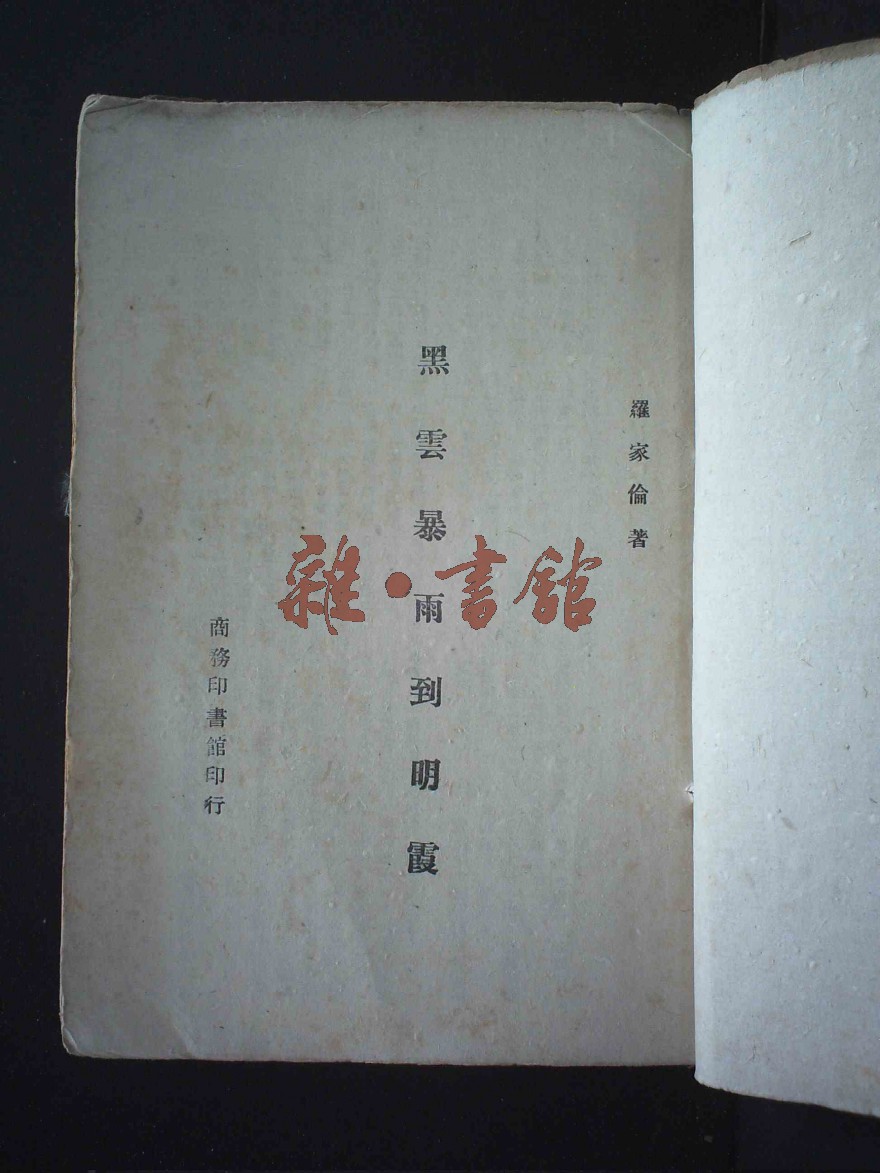 羅家倫著
黑雲暴雨到明霞
商務印書館印行
雜·書館